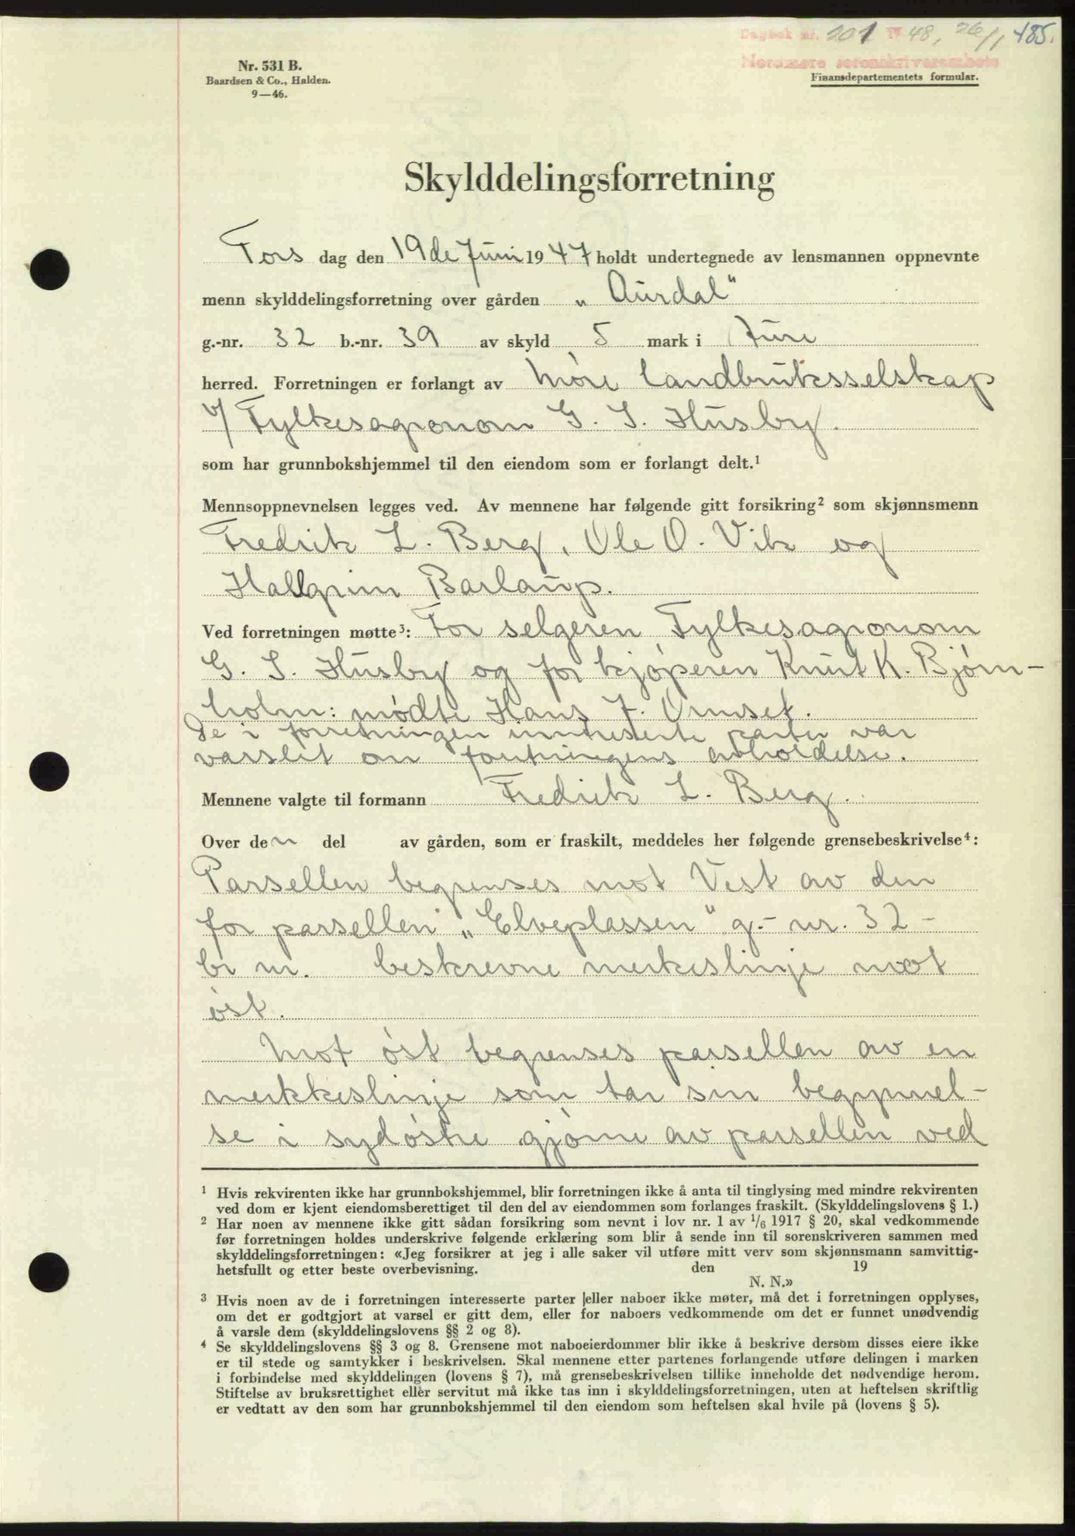 Dagbok nr. 201 19 48, 26/1 185.
Nordmøre sorenskriverembete
Nr. 531 B.
Baardsen & Co., Halden.
9—46.
Finansdepartementets formular.
Skylddelingsforretning
Tors dag den 19de Juni 1947 holdt undertegnede av lensmannen oppnevnte
menn skylddelingsforretning over gården „Aurdal"
g.-nr. 32 b.-nr. 39 av skyld 5 mark i Ture
herred. Forretningen er forlangt av Møre landbruksselskap
v/ Fylkesagronom G. S. Husby.
som har grunnbokshjemmel til den eiendom som er forlangt delt.¹
Mennsoppnevnelsen legges ved. Av mennene har følgende gitt forsikring² som skjønnsmenn
Fredrik L. Berg, Ole O. Vik og
Hallgrim Barlaup.
Ved forretningen møtte³: For selgeren Fylkesagronom
G. S. Husby og for kjøperen Knut K. Bjørn-
holm: mødte Hans J. Ormset.
De i forretningen interesserte parter var
varslet om forretningens avholdelse.
Mennene valgte til formann Fredrik L. Berg.
Over den del av gården, som er fraskilt, meddeles her følgende grensebeskrivelse⁴:
Parsellen begrenses mot Vest av den
for parsellen „Elveplassen" g.- nr. 32 -
br nr. beskrevne merkeslinje mot
øst.
Mot øst begrenses parsellen av en
merkkeslinje som tar sin begynnel-
se i sydøstre hjørne av parsellen ved
¹ Hvis rekvirenten ikke har grunnbokshjemmel, blir forretningen ikke å anta til tinglysing med mindre rekvirenten
ved dom er kjent eiendomsberettiget til den del av eiendommen som forlanges fraskilt. (Skylddelingslovens § 1.)
² Har noen av mennene ikke gitt sådan forsikring som nevnt i lov nr. 1 av 1/6 1917 § 20, skal vedkommende
før forretningen holdes underskrive følgende erklæring som blir å sende inn til sorenskriveren sammen med
skylddelingsforretningen: «Jeg forsikrer at jeg i alle saker vil utføre mitt verv som skjønnsmann samvittig-
hetsfullt og etter beste overbevisning. den 19
N. N.»
³ Hvis noen av de i forretningen interesserte parter eller naboer ikke møter, må det i forretningen opplyses,
om det er godtgjort at varsel er gitt dem, eller for naboers vedkommende om det er funnet unødvendig
å varsle dem (skylddelingslovens §§ 2 og 8).
⁴ Se skylddelingslovens §§ 3 og 8. Grensene mot naboeierdommer blir ikke å beskrive dersom disses eiere ikke
er til stede og samtykker i beskrivelsen. Skal mennene etter partenes forlangende utføre delingen i marken
i forbindelse med skylddelingen (lovens § 7), må grensebeskrivelsen tillike inneholde det nødvendige herom.
Stiftelse av bruksrettighet eller servitut må ikke tas inn i skylddelingsforretningen, uten at heftelsen skriftlig
er vedtatt av den som har grunnbokshjemmel til den eiendom som heftelsen skal hvile på (lovens § 5).